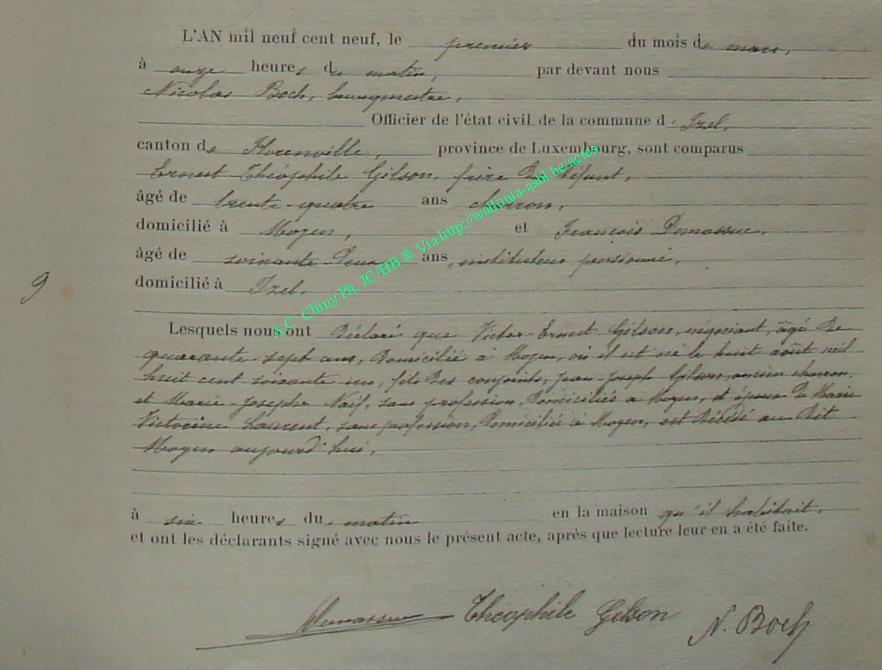 L'AN mil neuf cent neuf, le premier du mois de mars,
à onze heures du matin, par devant nous
Nicolas Boch, bourgmestre,
Officier de l'état civil de la commune d'Izel,
canton de Florenville, province de Luxembourg, sont comparus
Ernest Théophile Gilson, frère du défunt,
âgé de trente-quatre ans charron,
domicilié à Moyen, et François Demasure,
âgé de soixante deux ans, instituteur pensionné,
domicilié à Izel.
9
Lesquels nous ont déclaré que Victor-Ernest Gilson, négociant, âgé de
quarante sept ans, domicilié à Moyen, où il est né le huit août mil
huit cent soixante un, fils des conjoints, Jean-Joseph Gilson, ancien charron,
et Marie-Josephe Naif, sans profession, domiciliés à Moyen, et époux de Marie
Victorine Laurent, sans profession, domiciliée à Moyen, est décédé au dit
Moyen aujourd'hui,
à six heures du matin en la maison qu'il habitait,
et ont les déclarants signé avec nous le présent acte, après que lecture leur en a été faite.
Théophile Gilson N. Boch
A.C. Chiny Ph. JC/HB ® Via http://wallonia-asbl.be/actes